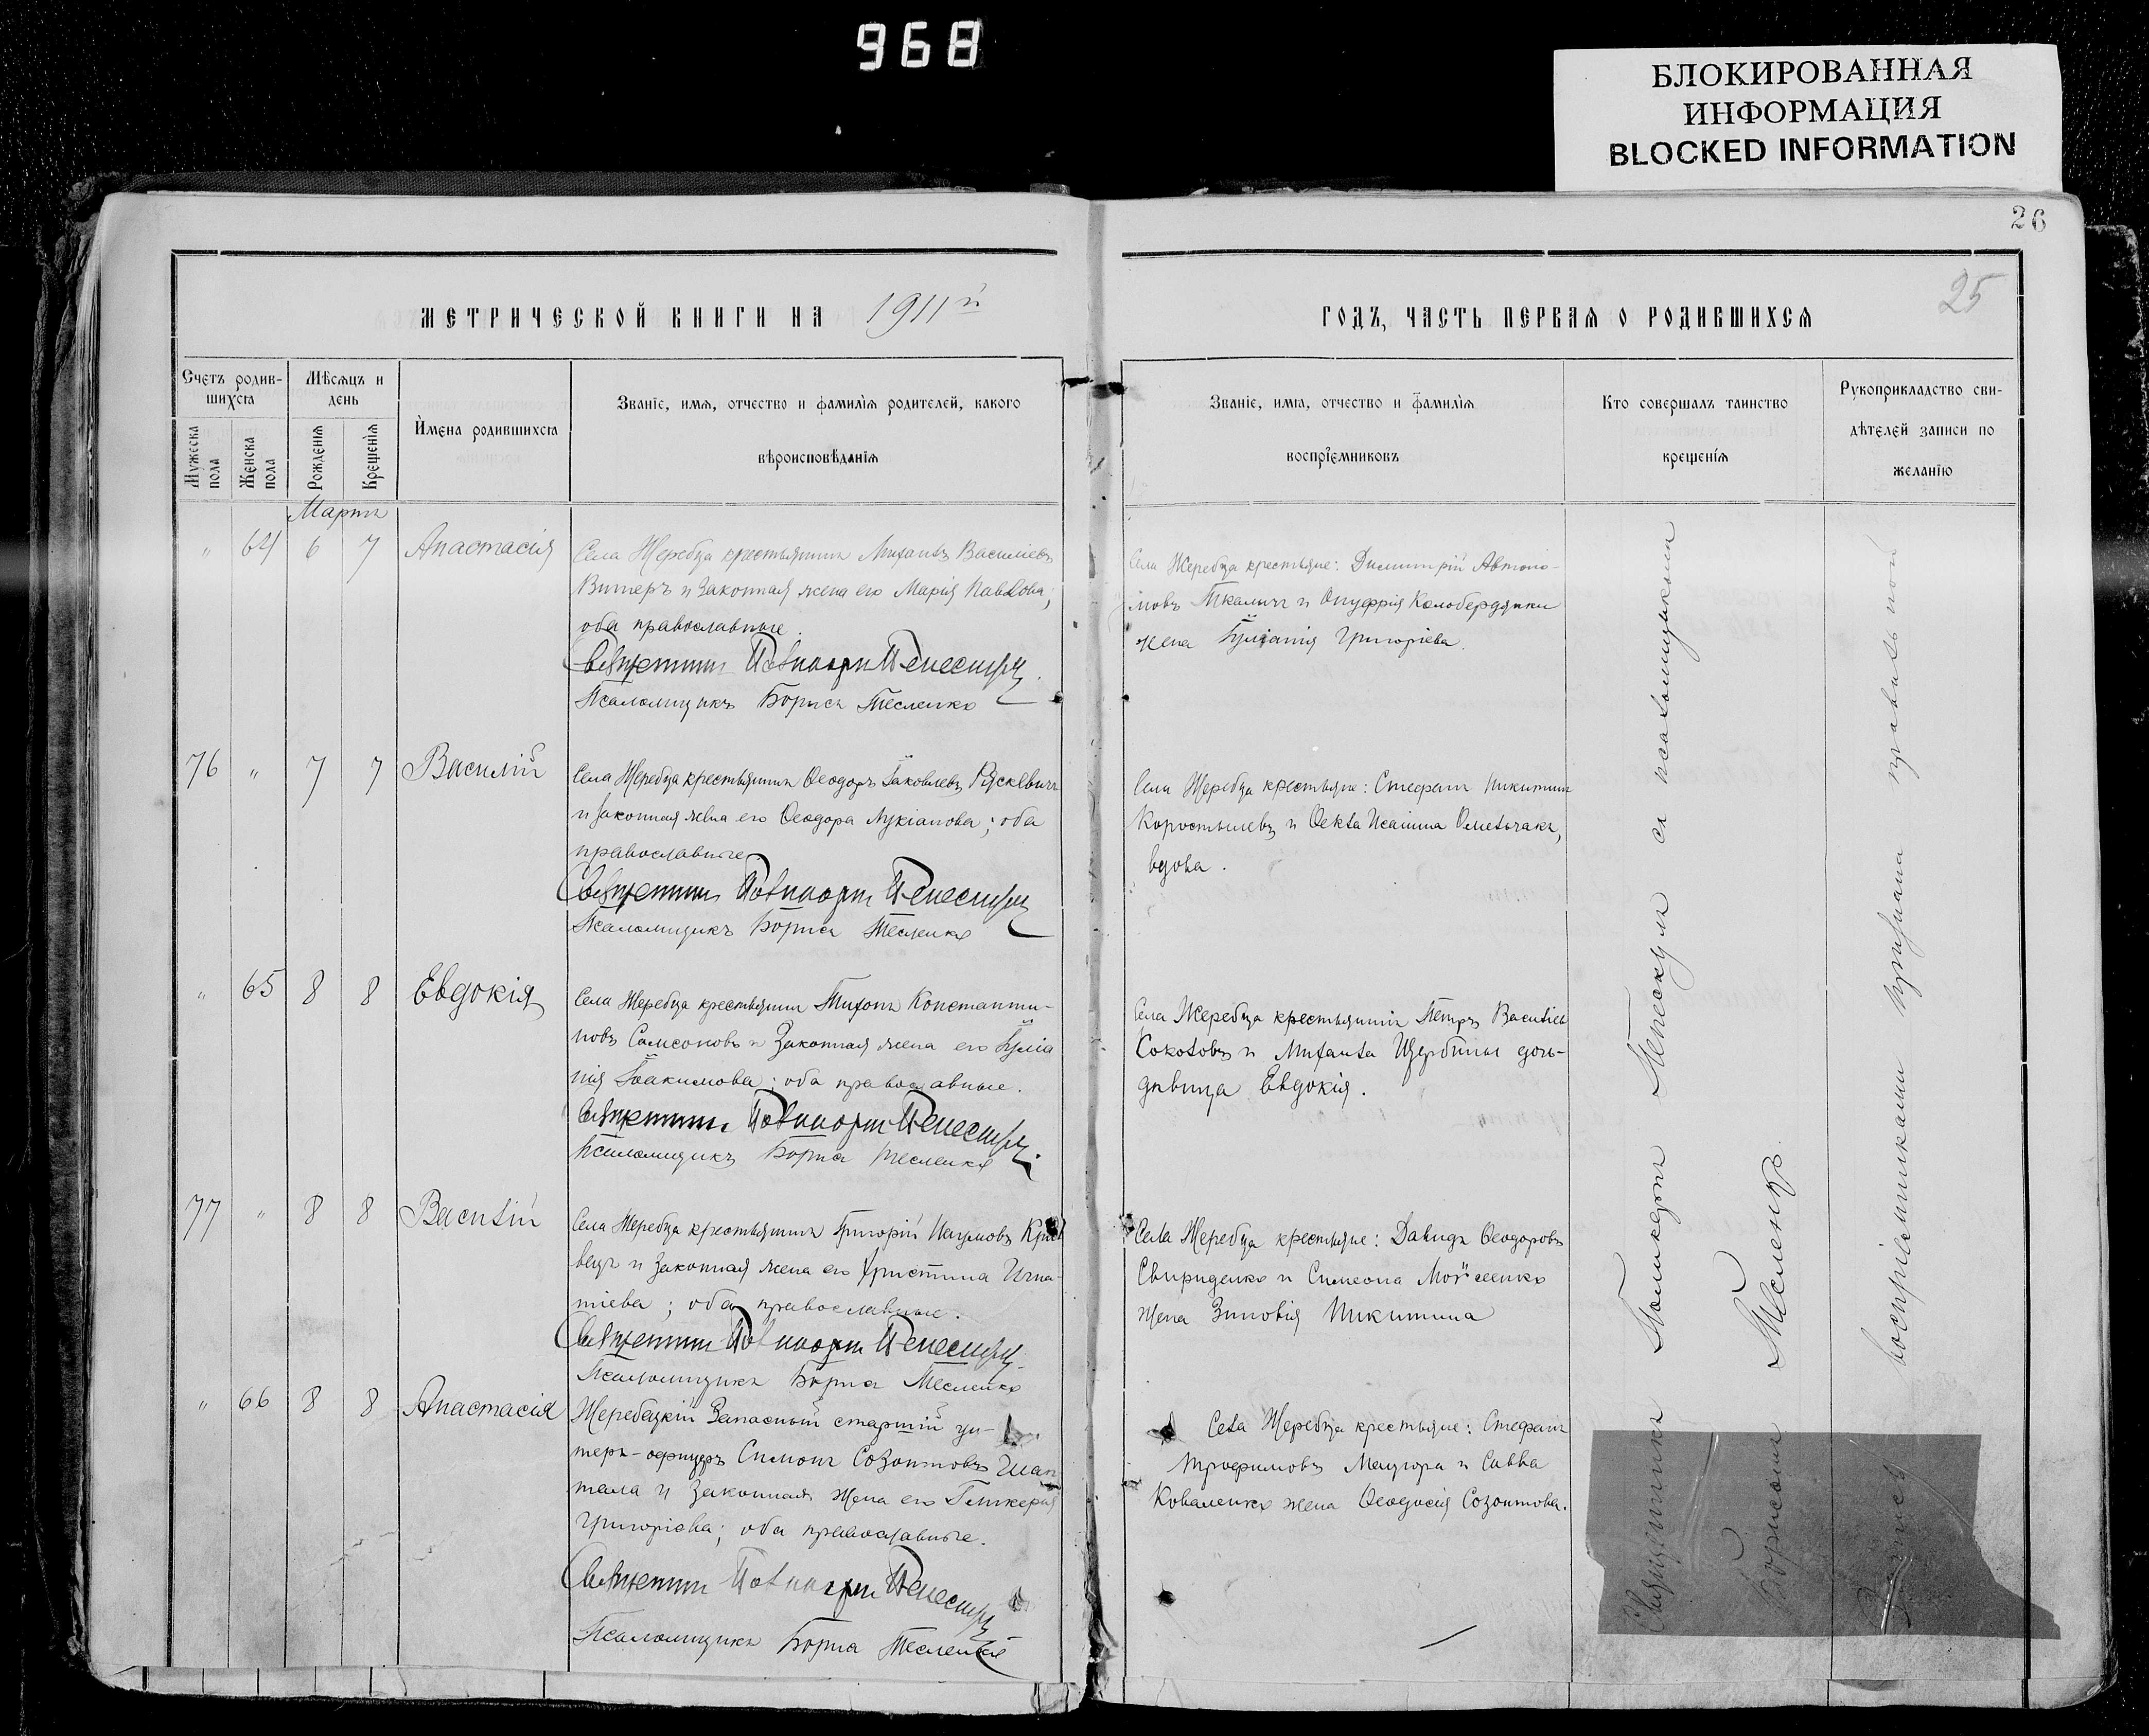 968
БЛОКИРОВАННАЯ
ИНФОРМАЦИЯ
BLOCKED INFORMATION
26
25
МЕТРИЧЕСКОЙ КНИГИ НА 1911й
ГОДЪ, ЧАСТЬ ПЕРВАЯ О РОДИВШИХСЯ
Счетъ родив-
шихся
Мужеска пола
Женска пола
Мѣсяцъ и
день
Рожденія
Крещенія
Имена родившихся
Званіе, имя, отчество и фамилія родителей, какого
вѣроисповѣданія
Званіе, имя, отчество и фамилія
воспріемниковъ
Кто совершалъ таинство
крещенія
Рукоприкладство сви-
дѣтелей записи по
желанію
Мартъ
" 64 6 7 Анастасія
Села Жеребца крестьянинъ Михаилъ Василіевъ
Витеръ и законная жена его Марія Павлова;
оба православные.
Священникъ
Псаломщикъ Борисъ Тесленко
Села Жеребца крестьяне: Димитрій Автоно-
мовъ Ткаличъ и Онуфрія Колобердянки
жена Іуліанія Григоріева.
76 " 7 7 Василій
Села Жеребца крестьянинъ Ѳеодоръ Іаковлевъ
и законная жена его Ѳеодора Лукіанова; оба
православные.
Священникъ
Псаломщикъ Борисъ Тесленко
Села Жеребца крестьяне: Стефанъ Никитинъ
Коростылевъ и Ѳекла Исаіина Омельчакъ,
вдова.
" 65 8 8 Евдокія
Села Жеребца крестьянинъ Тихонъ Константи-
новъ Самсоновъ и законная жена его Іуліа
нія Іоакимова; оба православные.
Священникъ
Псаломщикъ Борисъ Тесленко
Села Жеребца крестьянинъ Петръ Василіевъ
Соколовъ и Михаила Щербины дочь-
дѣвица Евдокія.
77 " 8 8 Василій
Села Жеребца крестьянинъ Григорій Наумовъ Крав
вецъ и законная жена его Христина Игна-
тіева; оба православные.
Священникъ
Псаломщикъ Борисъ Тесленко
Села Жеребца крестьяне: Давидъ Ѳеодоровъ
Свириденко и Симеона Мойсеенко
жена Зиновія Никитина
" 66 8 8 Анастасія
Жеребецкій Запасный старшій ун-
теръ-офицеръ Симонъ Созонтовъ Шап
тала и законная жена его Гликерія
Григоріева; оба православные.
Священникъ
Псаломщикъ Борисъ Тесленко
Села Жеребца крестьяне: Стефанъ
Трофимовъ Мацюра и Савва
Коваленко жена Ѳеодосія Созонтова.
Священникъ съ псаломщикомъ
Борисомъ Тесленко.
Запись воспріемниками признана правильной